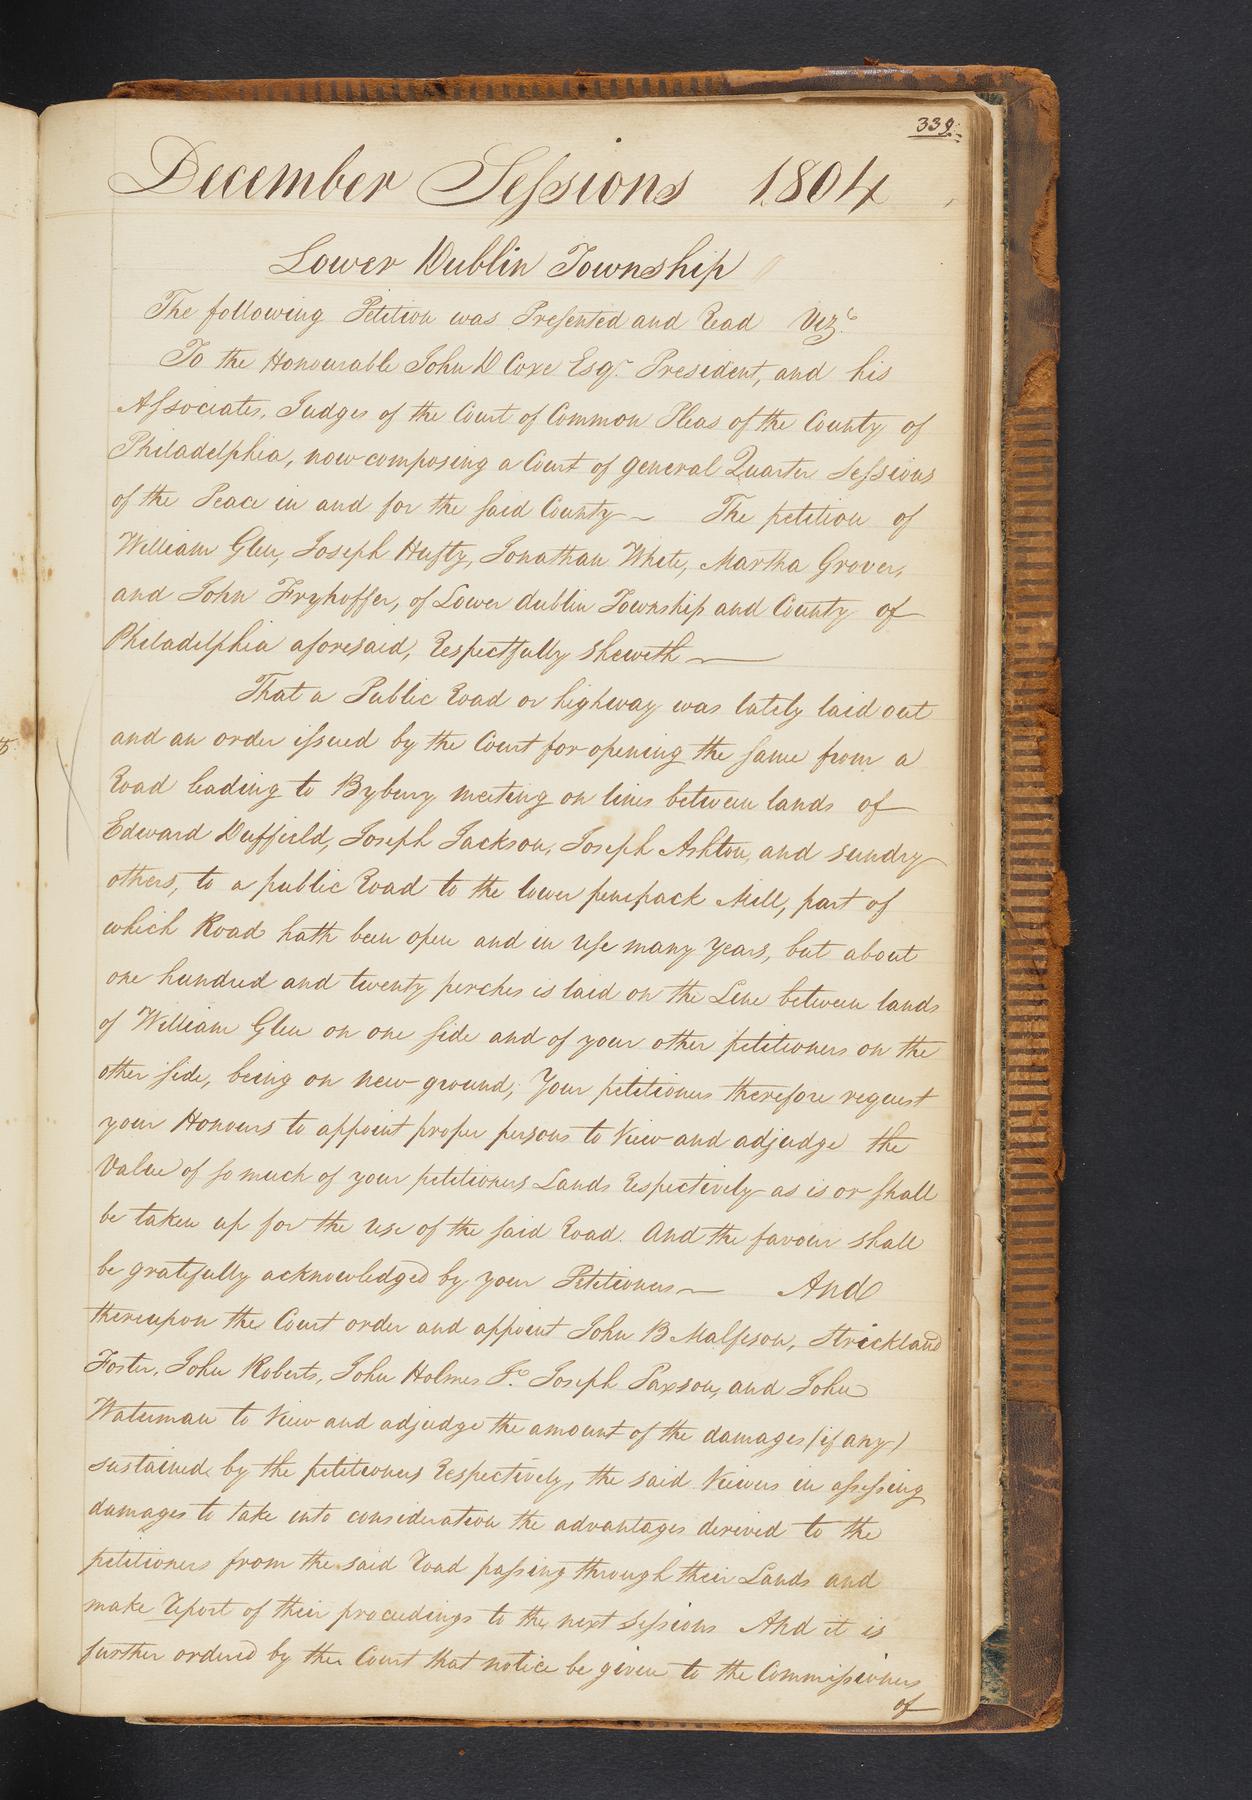 339.
December Sessions 1804
Lower Dublin Township
The following Petition was Presented and Read Vizt
To the Honourable John D Coxe Esqr President, and his
Associates, Judges of the Court of Common Pleas of the County of
Philadelphia, now composing a Court of general Quarter Sessions
of the Peace in and for the said County — The petition of
William Glen, Joseph Hufty, Jonathan White, Martha Grover,
and John Fryhoffer, of Lower dublin Township and County of
Philadelphia aforesaid, Respectfully sheweth —
That a Public Road or highway was lately laid out
and an order issued by the Court for opening the same from a
Road leading to Bybery meeting on lines between lands of
Edward Duffield, Joseph Jackson, Joseph Ashton, and sundry
others, to a public Road to the lower penepack Mill, part of
which Road hath been open and in use many years, but about
one hundred and twenty perches is laid on the Line between lands
of William Glen on one side and of your other petitioners on the
other side, being on new ground; Your petitioners therefore request
your Honours to appoint proper persons to View and adjudge the
Value of so much of your petitioners Lands Respectively as is or shall
be taken up for the use of the said Road. And the favour shall
be gratefully acknowledged by your Petitioners — And
thereupon the Court order and appoint John B Malfeson, Strickland
Foster, John Roberts, John Holmes Jr. Joseph Paxson, and John
Waterman to View and adjudge the amount of the damages (if any)
sustained by the petitioners Respectively, the said Viewers in assessing
damages to take into consideration the advantages derived to the
petitioners from the said Road passing through their Lands and
make Report of their proceedings to the next Sessions And it is
further ordered by the Court that notice be given to the Commissioners
of